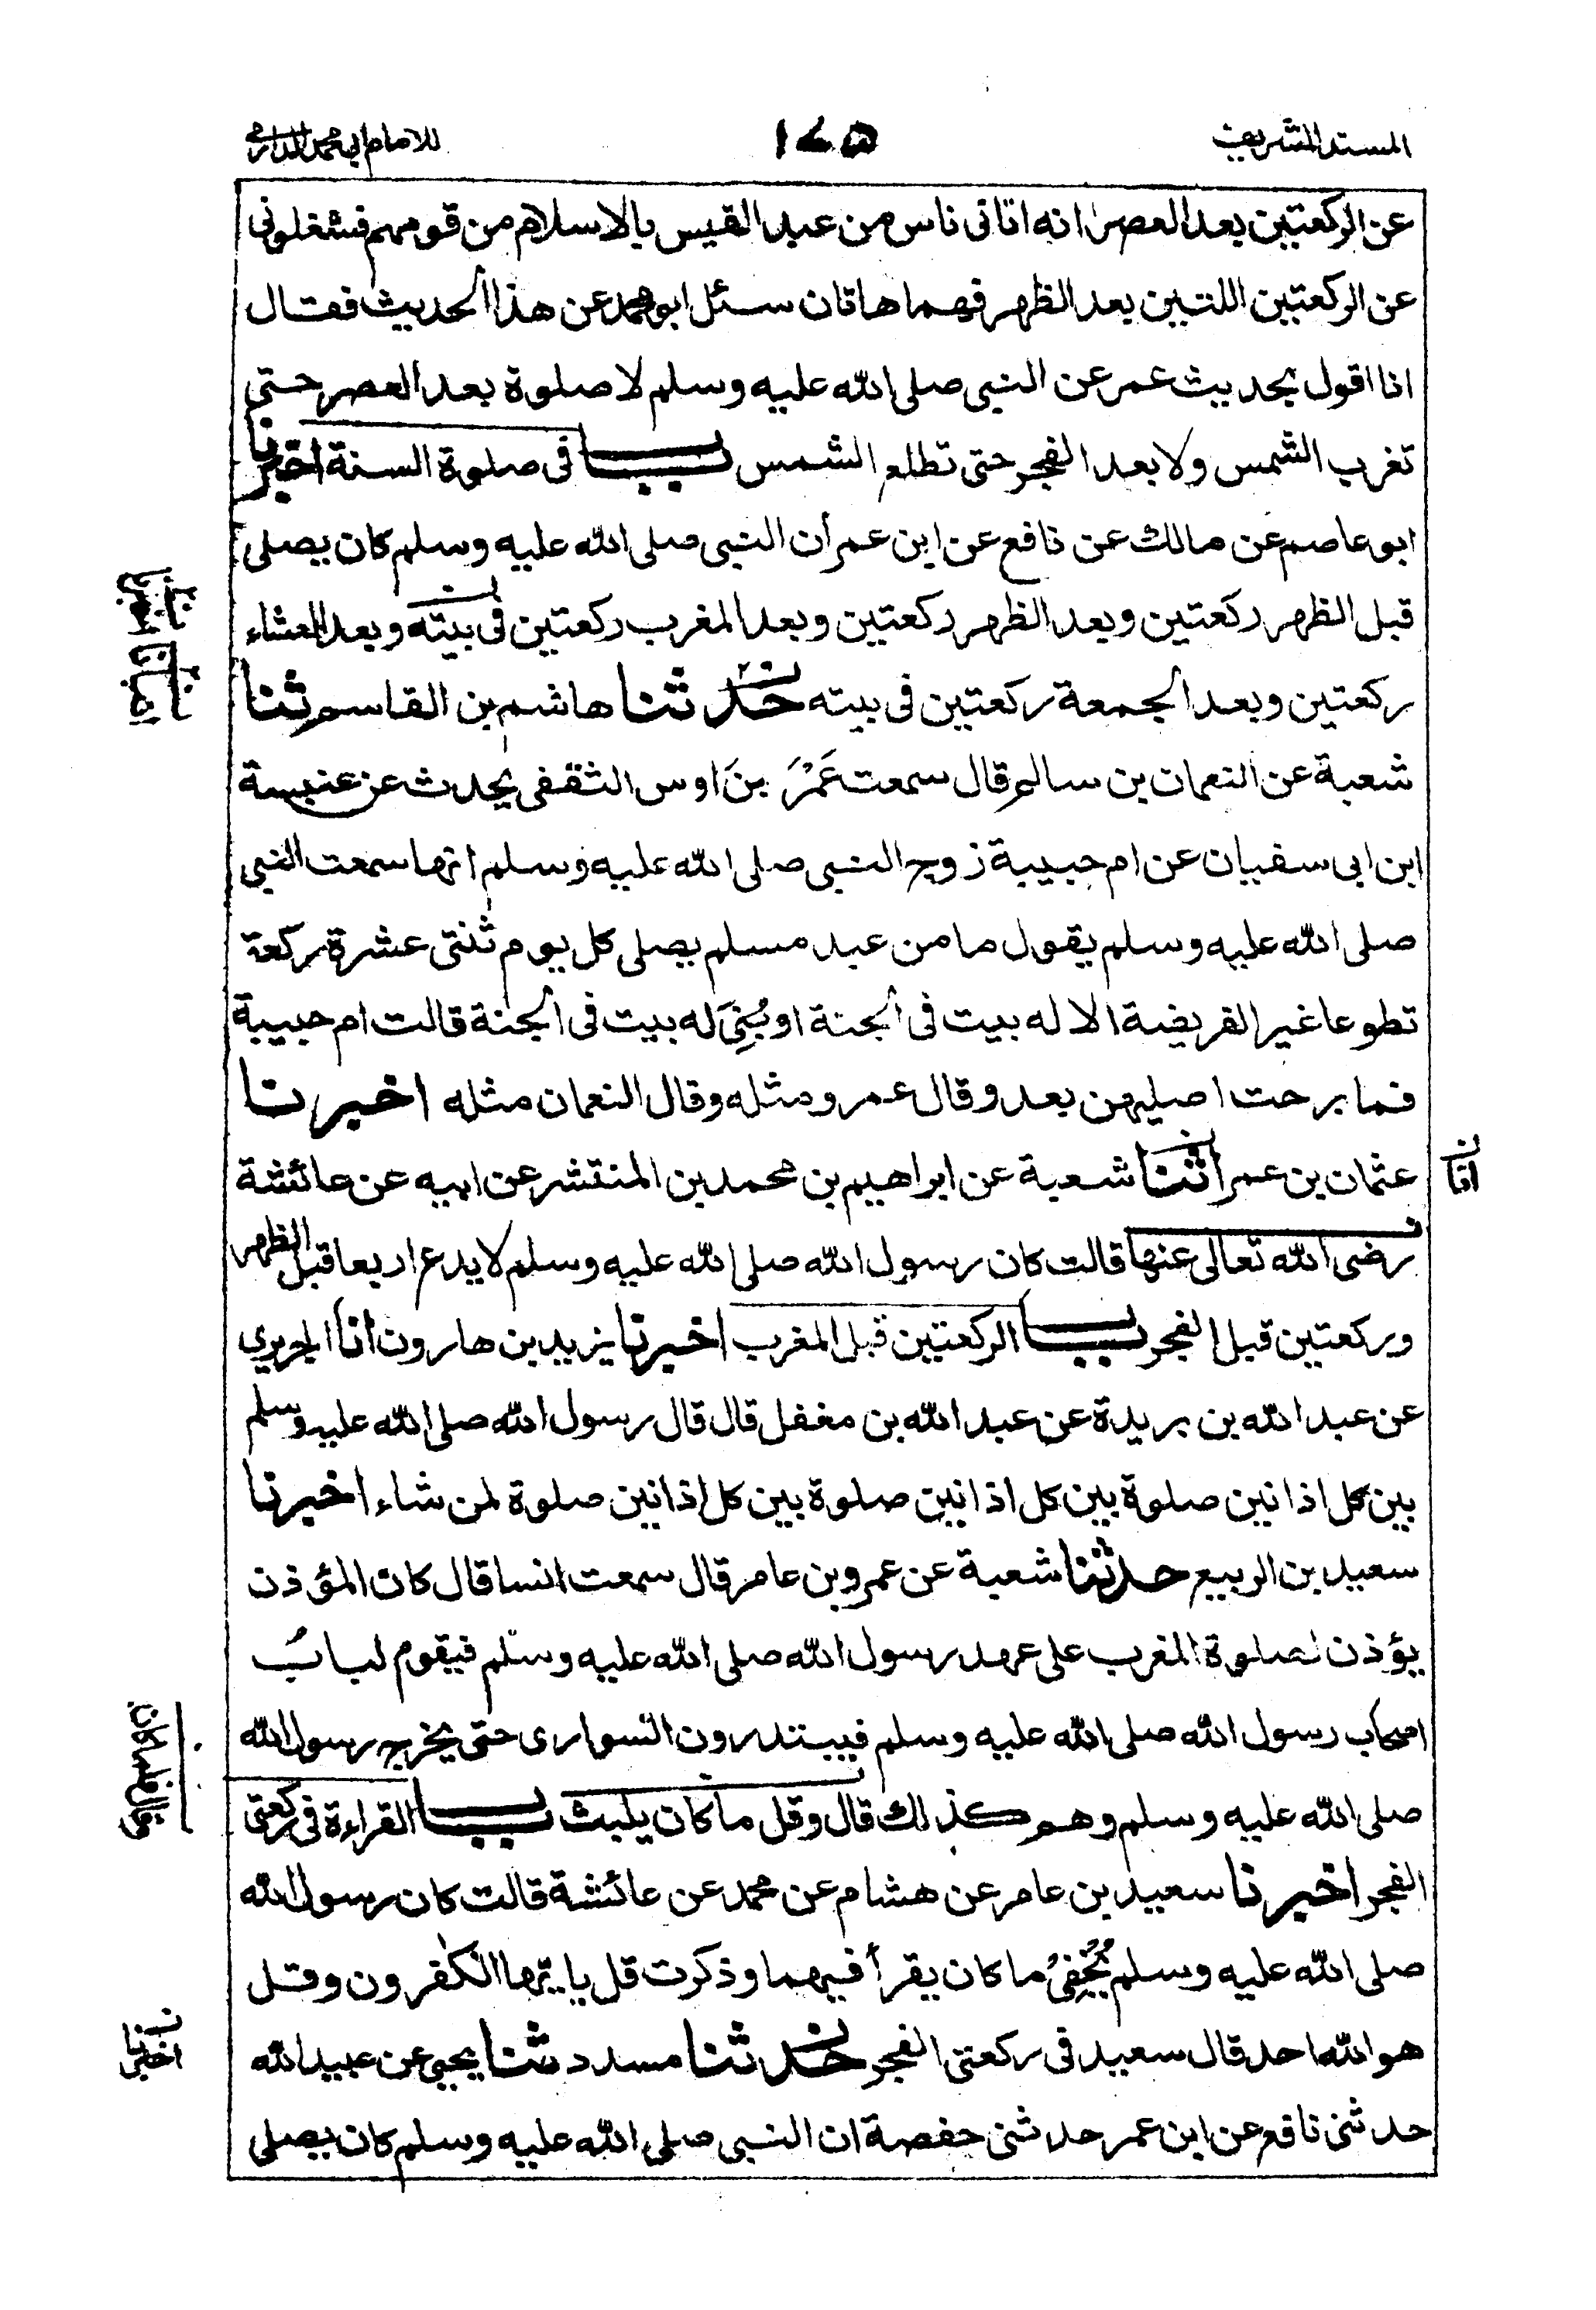 المسند الشريف
١٧٥
للامام ابي محمد الدارمي
عن الركعتين بعد العصر انه اتانى ناس من عبد القيس بالاسلام من قومهم فشغلونى
عن الركعتين اللتين بعد الظهر فهما هاتان سئل ابو محمد عن هذا الحديث فقال
انا اقول بحديث عمر عن النبى صلى الله عليه وسلم لا صلوة بعد العصر حتى
تغرب الشمس ولا بعد الفجر حتى تطلع الشمس باب فى صلوة السنة اخبرنا
ابو عاصم عن مالك عن نافع عن ابن عمر أن النبى صلى الله عليه وسلم كان يصلى
قبل الظهر ركعتين وبعد الظهر ركعتين وبعد المغرب ركعتين فى بيته وبعد العشاء
ركعتين وبعد الجمعة ركعتين فى بيته حدثنا هاشم بن القاسم ثنا
شعبة عن النعمان بن سالم قال سمعت عَمْرَ بنَ اوس الثقفى يحدث عن عنبسة
ابن ابى سفيان عن ام حبيبة زوج النبى صلى الله عليه وسلم انها سمعت النبى
صلى الله عليه وسلم يقول ما من عبد مسلم يصلى كل يوم ثنتى عشرة ركعة
تطوعا غير الفريضة الا له بيت فى الجنة او بُنِىَ له بيت فى الجنة قالت ام حبيبة
فما برحت اصليهن بعد وقال عمرو مثله وقال النعمان مثله اخبرنا
عثمان بن عمر اثنا شعبة عن ابراهيم بن محمد بن المنتشر عن ابيه عن عائشة
رضى الله تعالى عنها قالت كان رسول الله صلى الله عليه وسلم لا يدع اربعا قبل الظهر
وركعتين قبل الفجر باب الركعتين قبل المغرب اخبرنا يزيد بن هارون انا الجريري
عن عبد الله بن بريدة عن عبد الله بن مغفل قال قال رسول الله صلى الله عليه وسلم
بين كل اذانين صلوة بين كل اذانين صلوة بين كل اذانين صلوة لمن شاء اخبرنا
سعيد بن الربيع حدثنا شعبة عن عمرو بن عامر قال سمعت انسا قال كان المؤذن
يؤذن لصلوة المغرب على عهد رسول الله صلى الله عليه وسلم فيقوم لباب
اصحاب رسول الله صلى الله عليه وسلم فيبتدرون السوارى حتى يخرج رسول الله
صلى الله عليه وسلم وهم كذلك قال وقل ما كان يلبث باب القراءة فى ركعتى
الفجر اخبرنا سعيد بن عامر عن هشام عن محمد عن عائشة قالت كان رسول الله
صلى الله عليه وسلم يُخْفِىْ ما كان يقرأ فيهما وذكرت قل يا ايها الكفرون وقل
هو الله احد قال سعيد فى ركعتى الفجر حدثنا مسدد ثنا يحيى عن عبيد الله
حدثنى نافع عن ابن عمر حدثتنى حفصة ان النبى صلى الله عليه وسلم كان يصلى
انا
اخبرنا